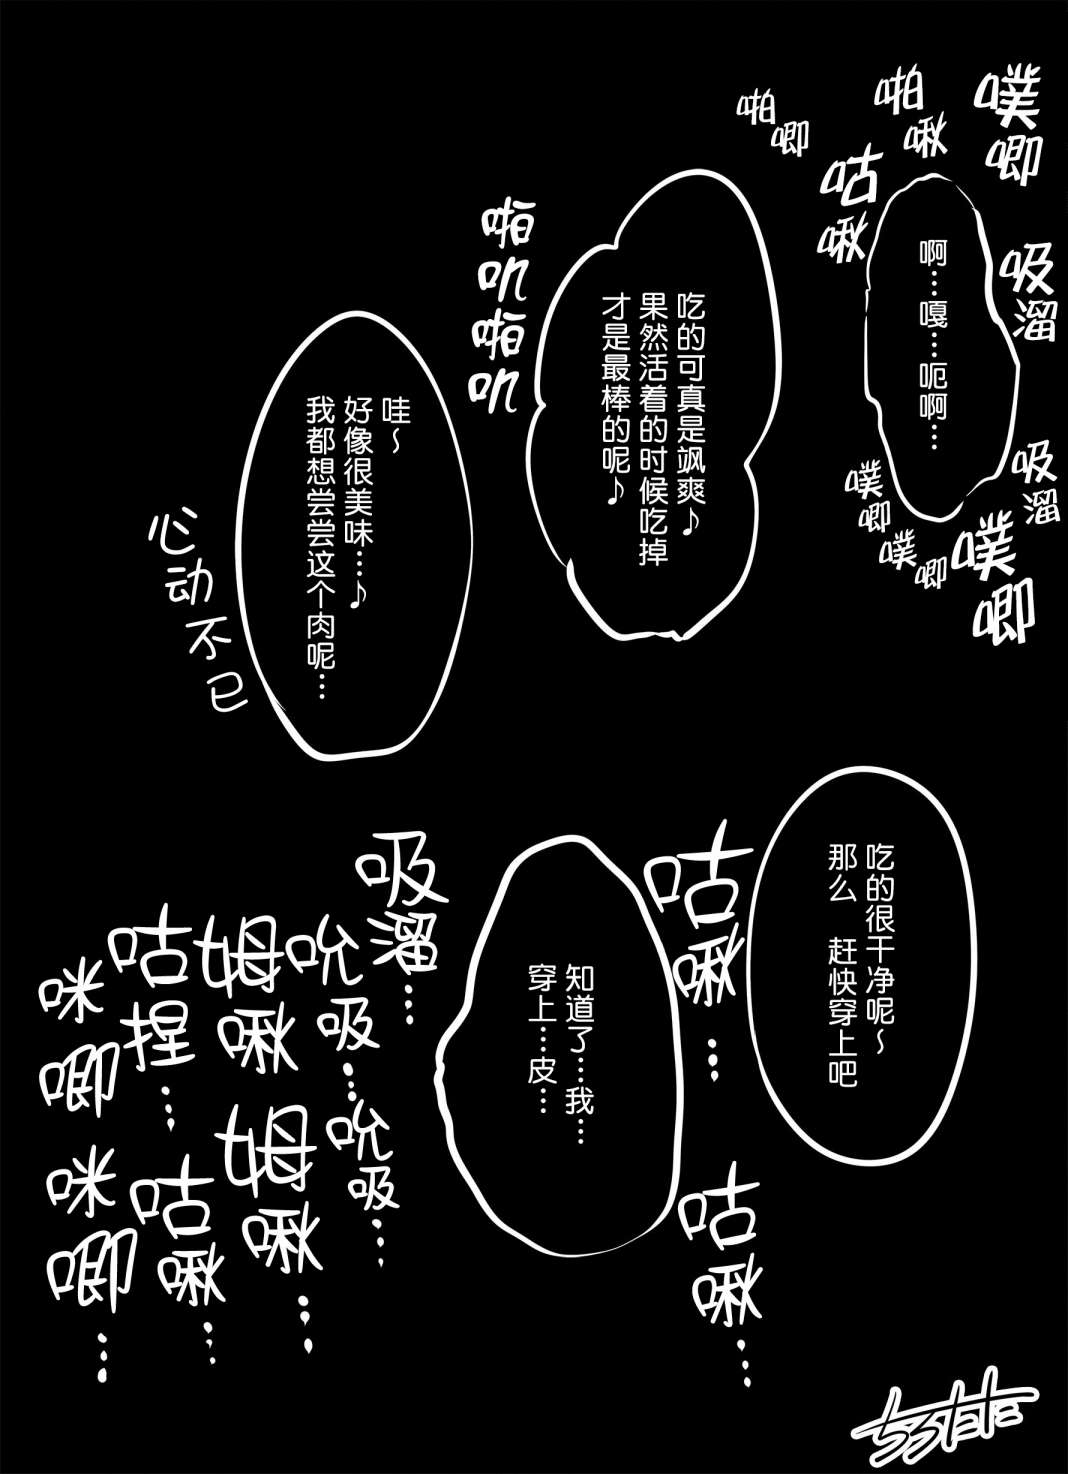 噗唧
啪啾
啪唧
咕啾
吸溜
啊…嘎…呃啊…
吸溜
噗唧
噗唧
噗唧
吃的可真是飒爽♪
果然活着的时候吃掉
才是最棒的呢♪
啪叽啪叽
哇~
好像很美味…♪
我都想尝尝这个肉呢…
心动不已
吃的很干净呢~
那么 赶快穿上吧
咕啾…
咕啾…
知道了…我…
穿上…皮…
吸溜…
吮吸…
吮吸…
姆啾
姆啾…
咕捏…
咕啾…
咪唧
咪唧…